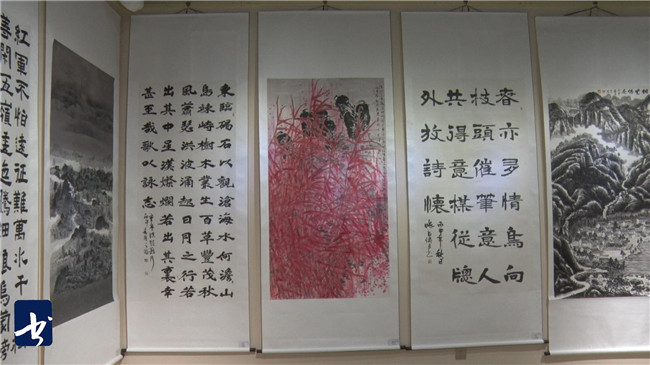 紅軍不怕遠征難萬水千
閑五嶺逶迤騰細浪烏蒙磅
東臨碣石以觀滄海水何澹山
島竦峙樹木叢生百草豐茂秋
風蕭瑟洪波涌起日月之行若
出其中星漢燦爛若出其裏幸
甚至哉歌以詠志
春亦多情鳥向
枝頭催筆意人
共得意媒從牕
外放詩懷
丙申年秋日